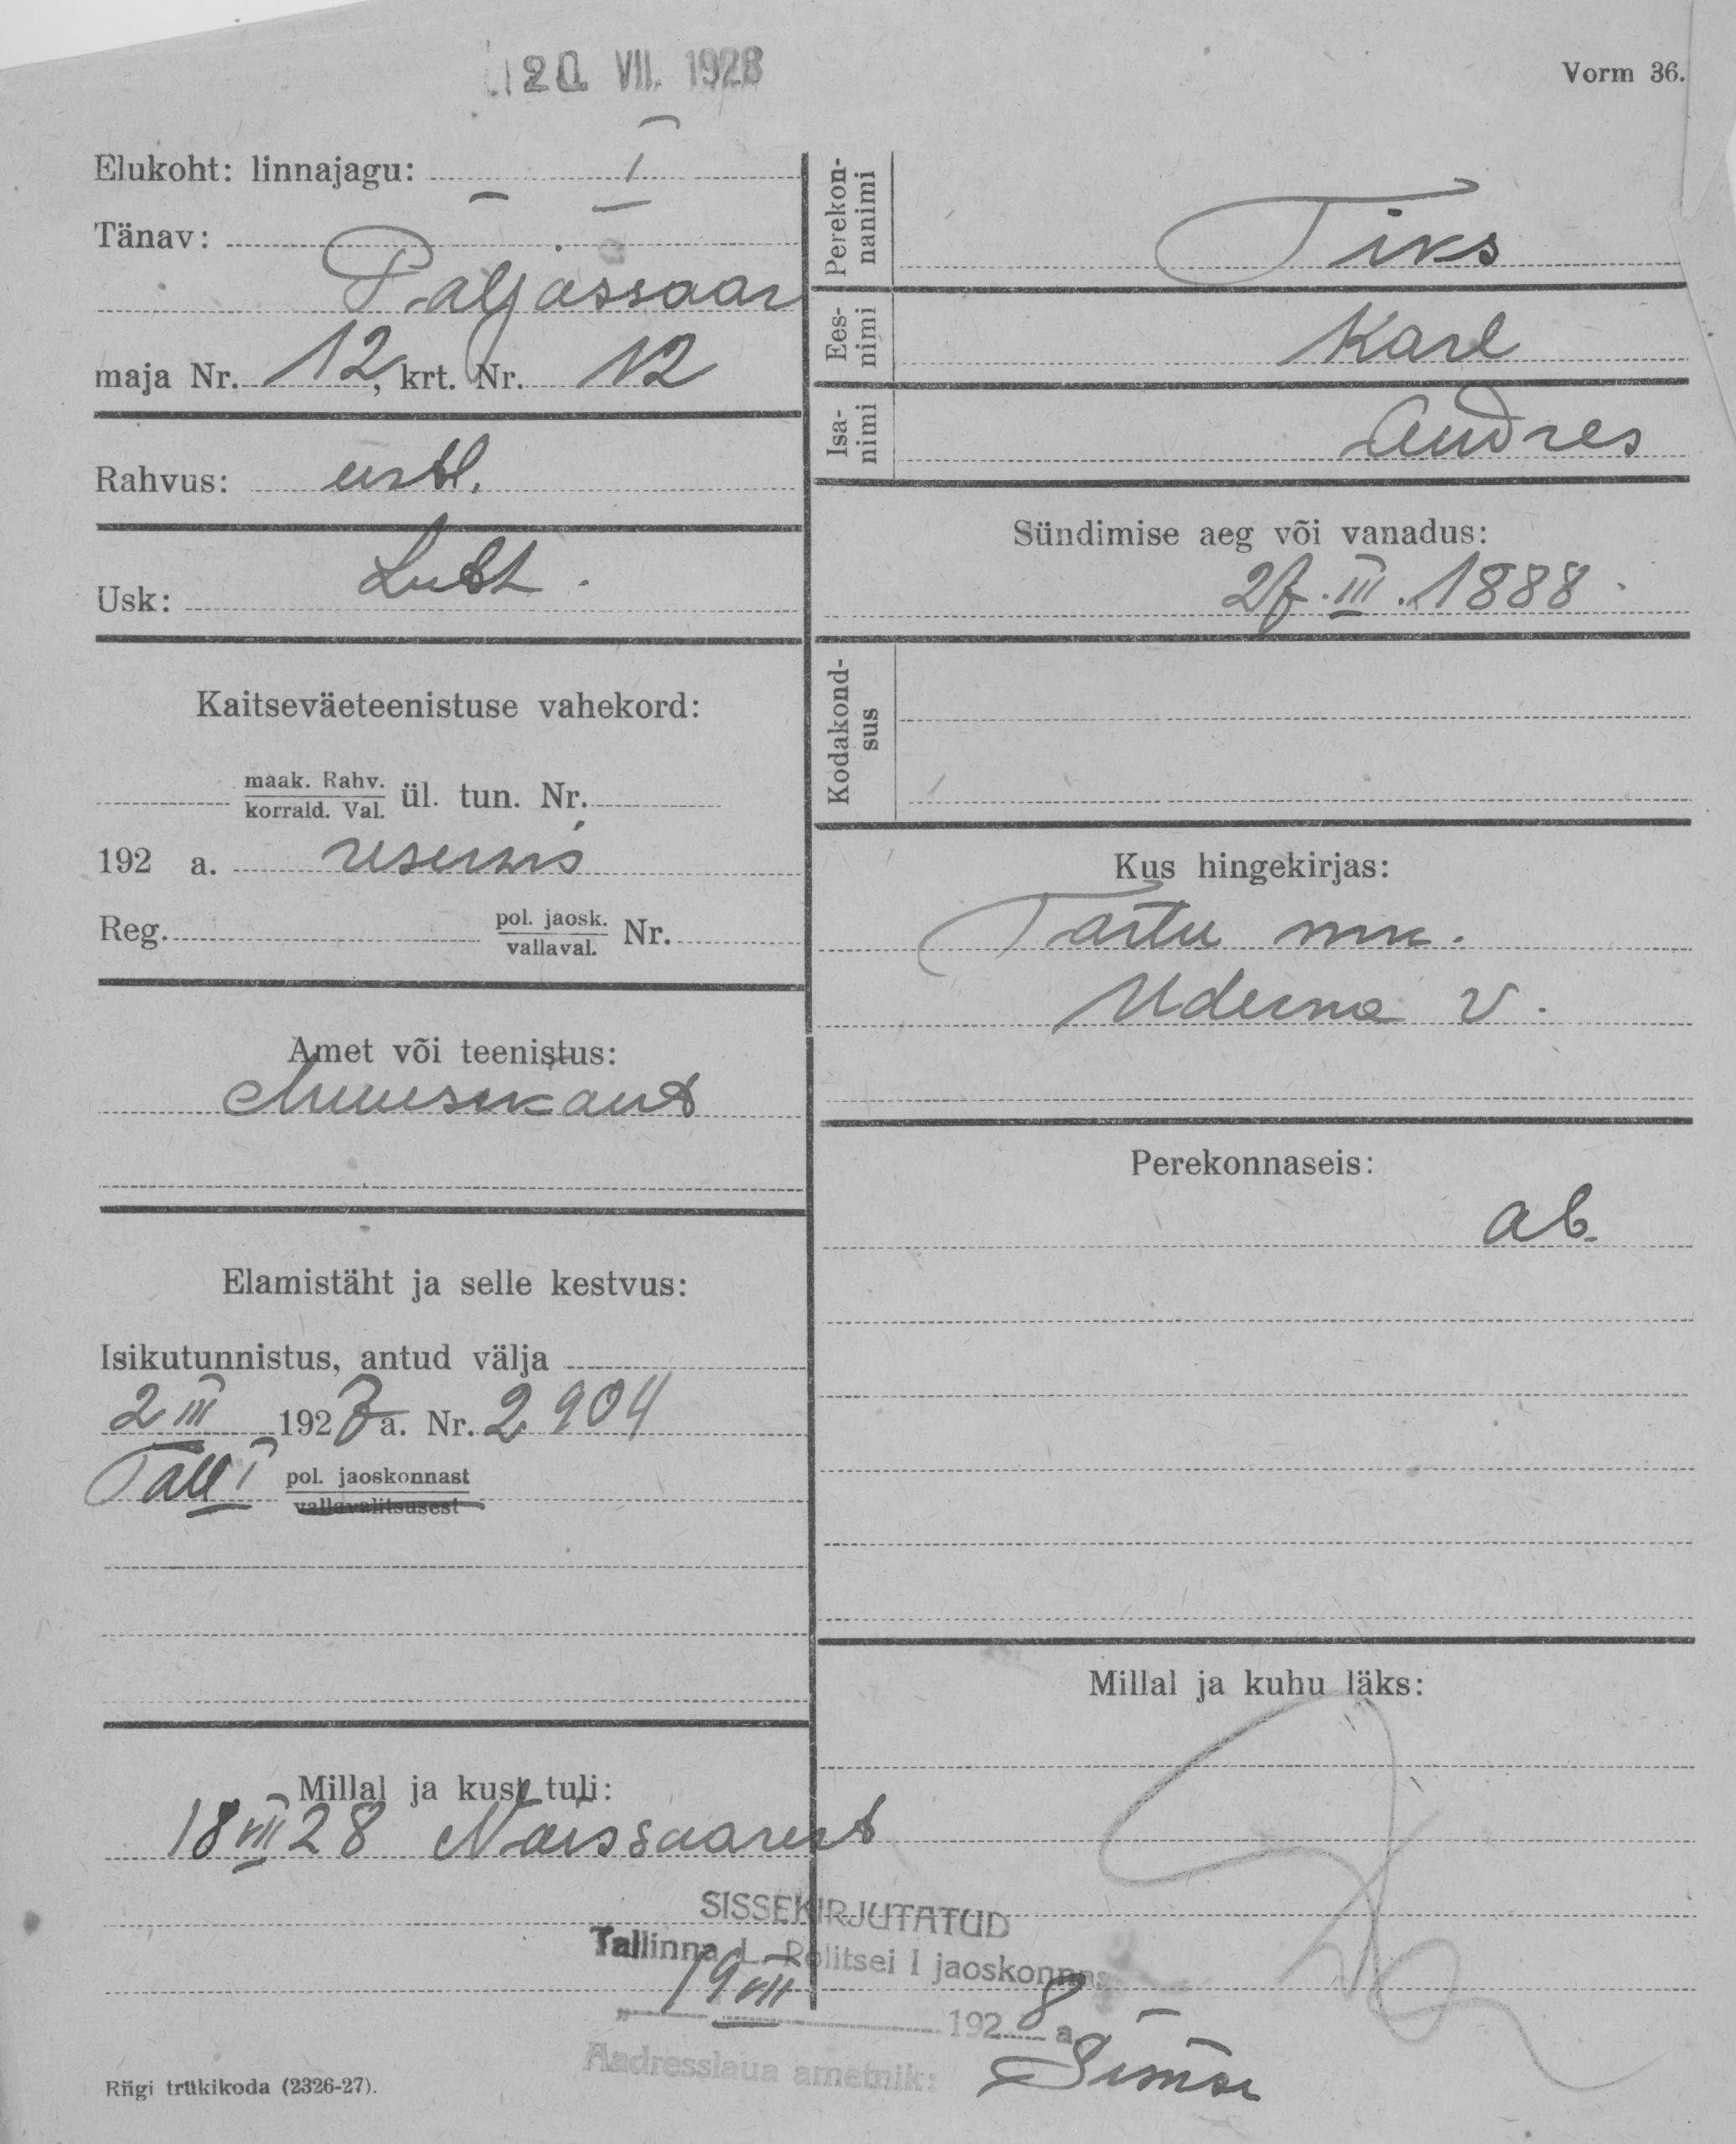 20. VII. 1928
Vorm 36.
Elukoht: linnajagu: I
Tänav:
Paljassaar
maja Nr. 12, krt. Nr. 12
Rahvus: eestl.
Usk: Lutt.
Kaitseväeteenistuse vahekord:
maak. Rahv.
korrald. Val. ül. tun. Nr.
192 a. reservis
Reg. pol. jaosk.
vallaval. Nr.
Amet või teenistus:
Muusikant
Elamistäht ja selle kestvus:
Isikutunnistus, antud välja
2 III 1927 a. Nr. 2904
Tall I pol. jaoskonnast
vallavalitsusest
Millal ja kust tuli:
18 VII 28 Naissaarest
Perekon-
nanimi
Tiks
Ees-
nimi
Karl
Isa-
nimi
Andres
Sündimise aeg või vanadus:
27. III. 1888.
Kodakond-
sus
Kus hingekirjas:
Tartu mk.
Uderna v.
Perekonnaseis:
ab.
Millal ja kuhu läks:
SISSEKIRJUTATUD
Tallinna L. Politsei I jaoskonnas
„ 19 VII 1928 a.
Aadresslaua ametnik:
Riigi trükikoda (2326-27).